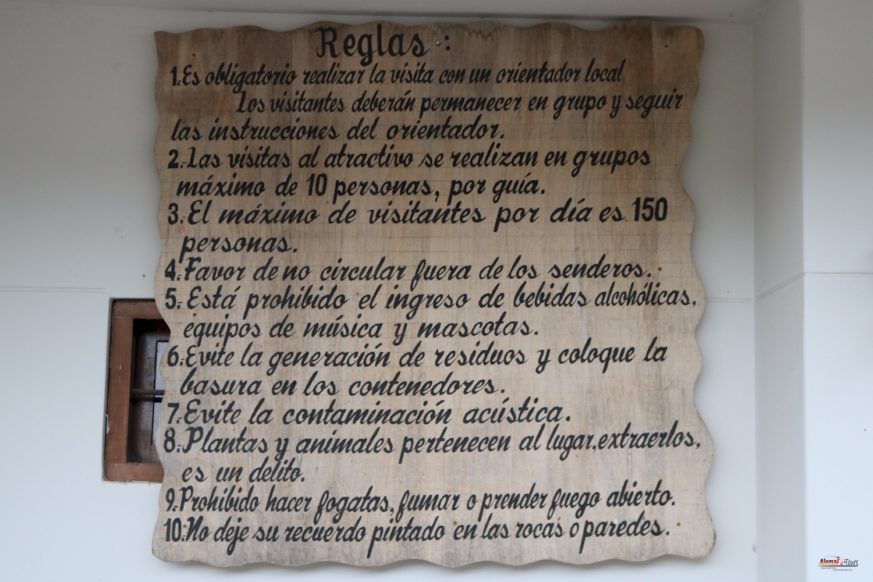 Reglas :
1. Es obligatorio realizar la visita con un orientador local
Los visitantes deberán permanecer en grupo y seguir
las instrucciones del orientador.
2. Las visitas al atractivo se realizan en grupos
máximo de 10 personas, por guía.
3. El máximo de visitantes por día es 150
personas.
4. Favor de no circular fuera de los senderos.
5. Está prohibido el ingreso de bebidas alcohólicas,
equipos de música y mascotas.
6. Evite la generación de residuos y coloque la
basura en los contenedores.
7. Evite la contaminación acústica.
8. Plantas y animales pertenecen al lugar, extraerlos,
es un delito.
9. Prohibido hacer fogatas, fumar o prender fuego abierto.
10. No deje su recuerdo pintado en las rocas o paredes.